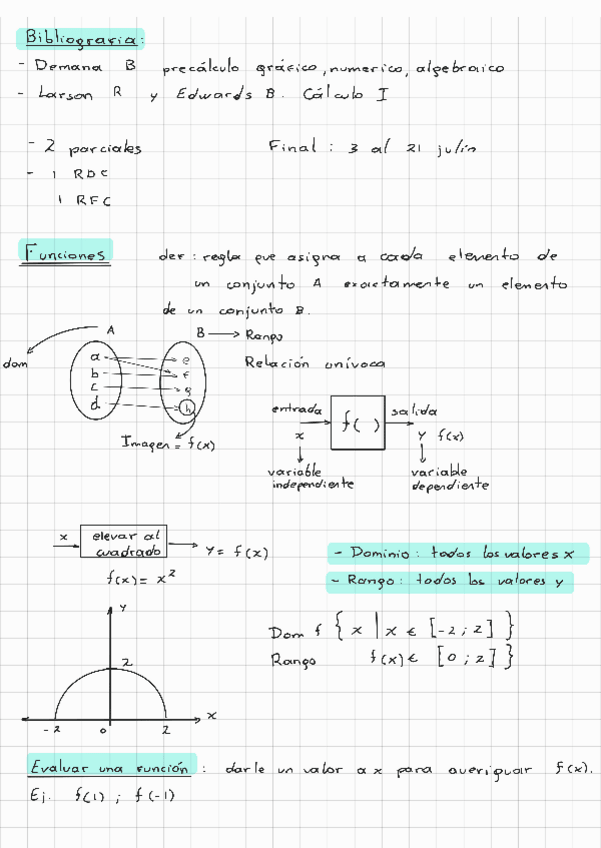 Bibliografía:
- Demana B precálculo gráfico, numerico, algebraico
- Larson R y Edwards B. Cálculo I
- 2 parciales Final : 3 al 21 julio
- 1 RDC
1 RFC
Funciones def : regla que asigna a cada elemento de
un conjunto A exactamente un elemento
de un conjunto B.
A B → Rango
dom
a e
b f
c g
d h
Relación unívoca
Imagen = f(x)
entrada f( ) salida
x y f(x)
variable independiente
variable dependiente
x elevar al cuadrado y = f(x)
f(x) = x²
- Dominio : todos los valores x
- Rango : todos los valores y
y
2
-2 0 2 x
Dom f { x | x ∈ [-2 ; 2] }
Rango f(x) ∈ [0 ; 2] }
Evaluar una función : darle un valor a x para averiguar f(x).
Ej. f(1) ; f(-1)